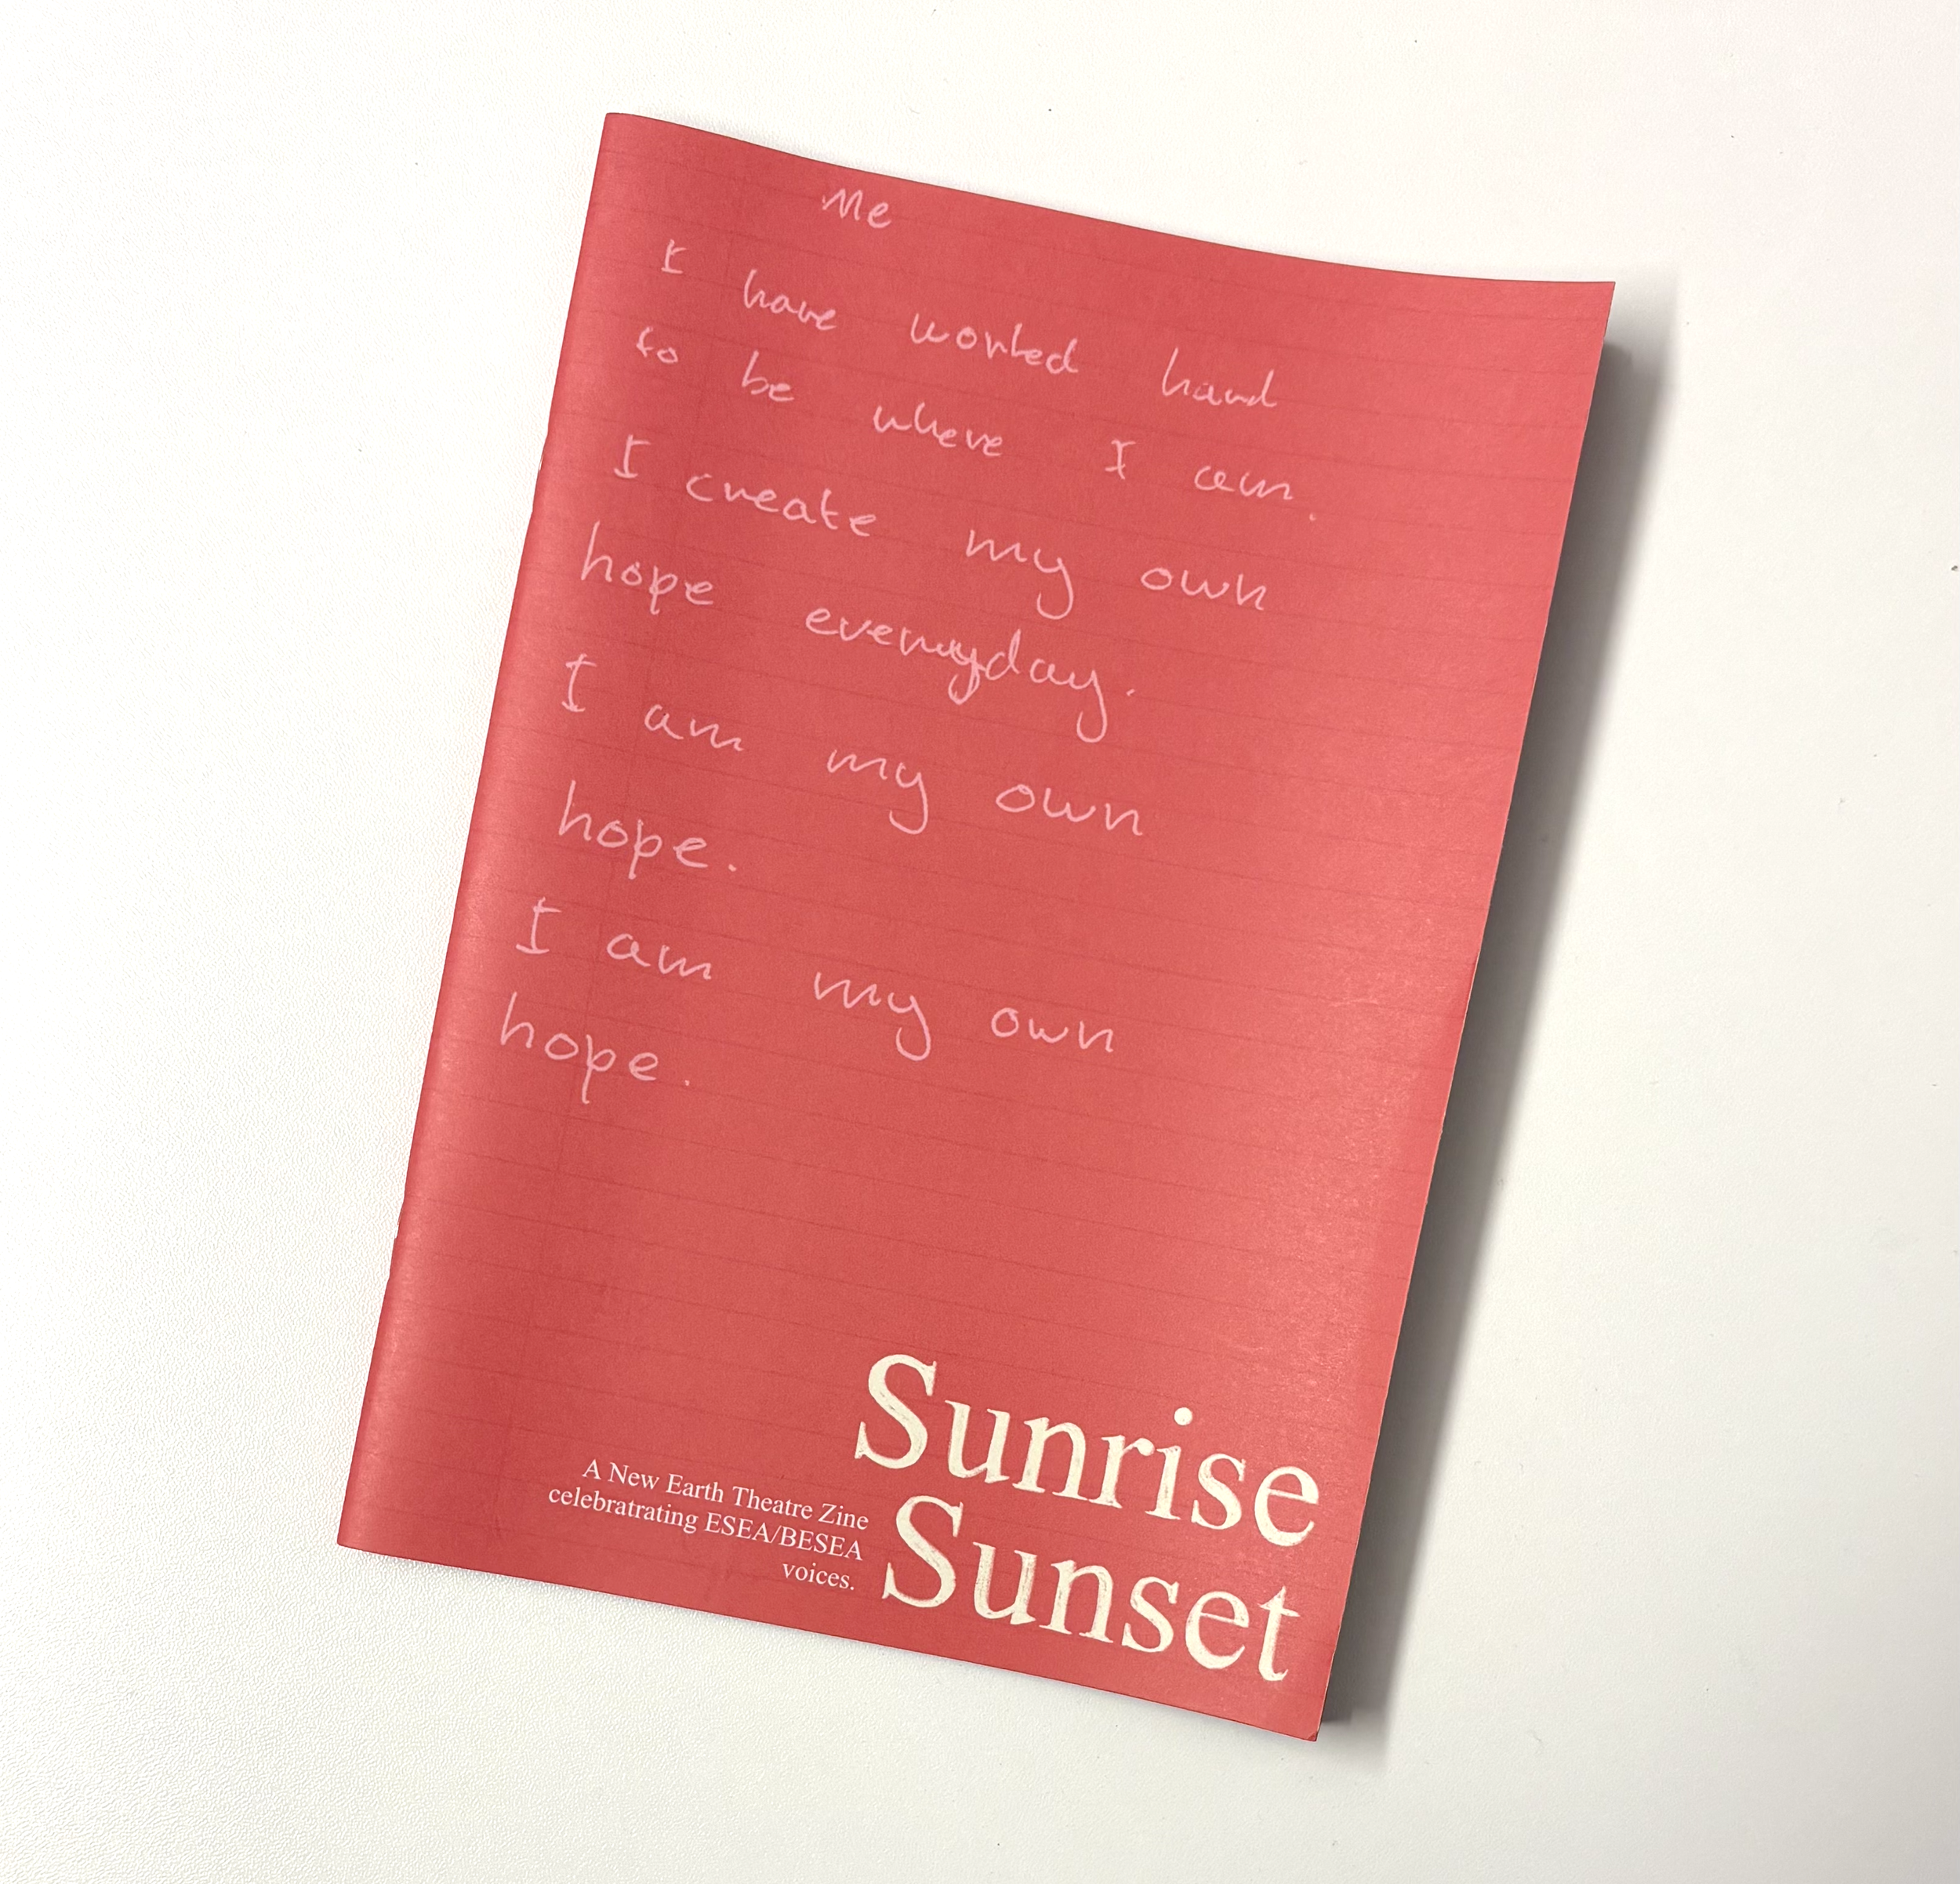 Me
I have worked hard
to be where I am.
I create my own
hope everyday.
I am my own
hope.
I am my own
hope.
Sunrise
Sunset
A New Earth Theatre Zine
celebratrating ESEA/BESEA
voices.